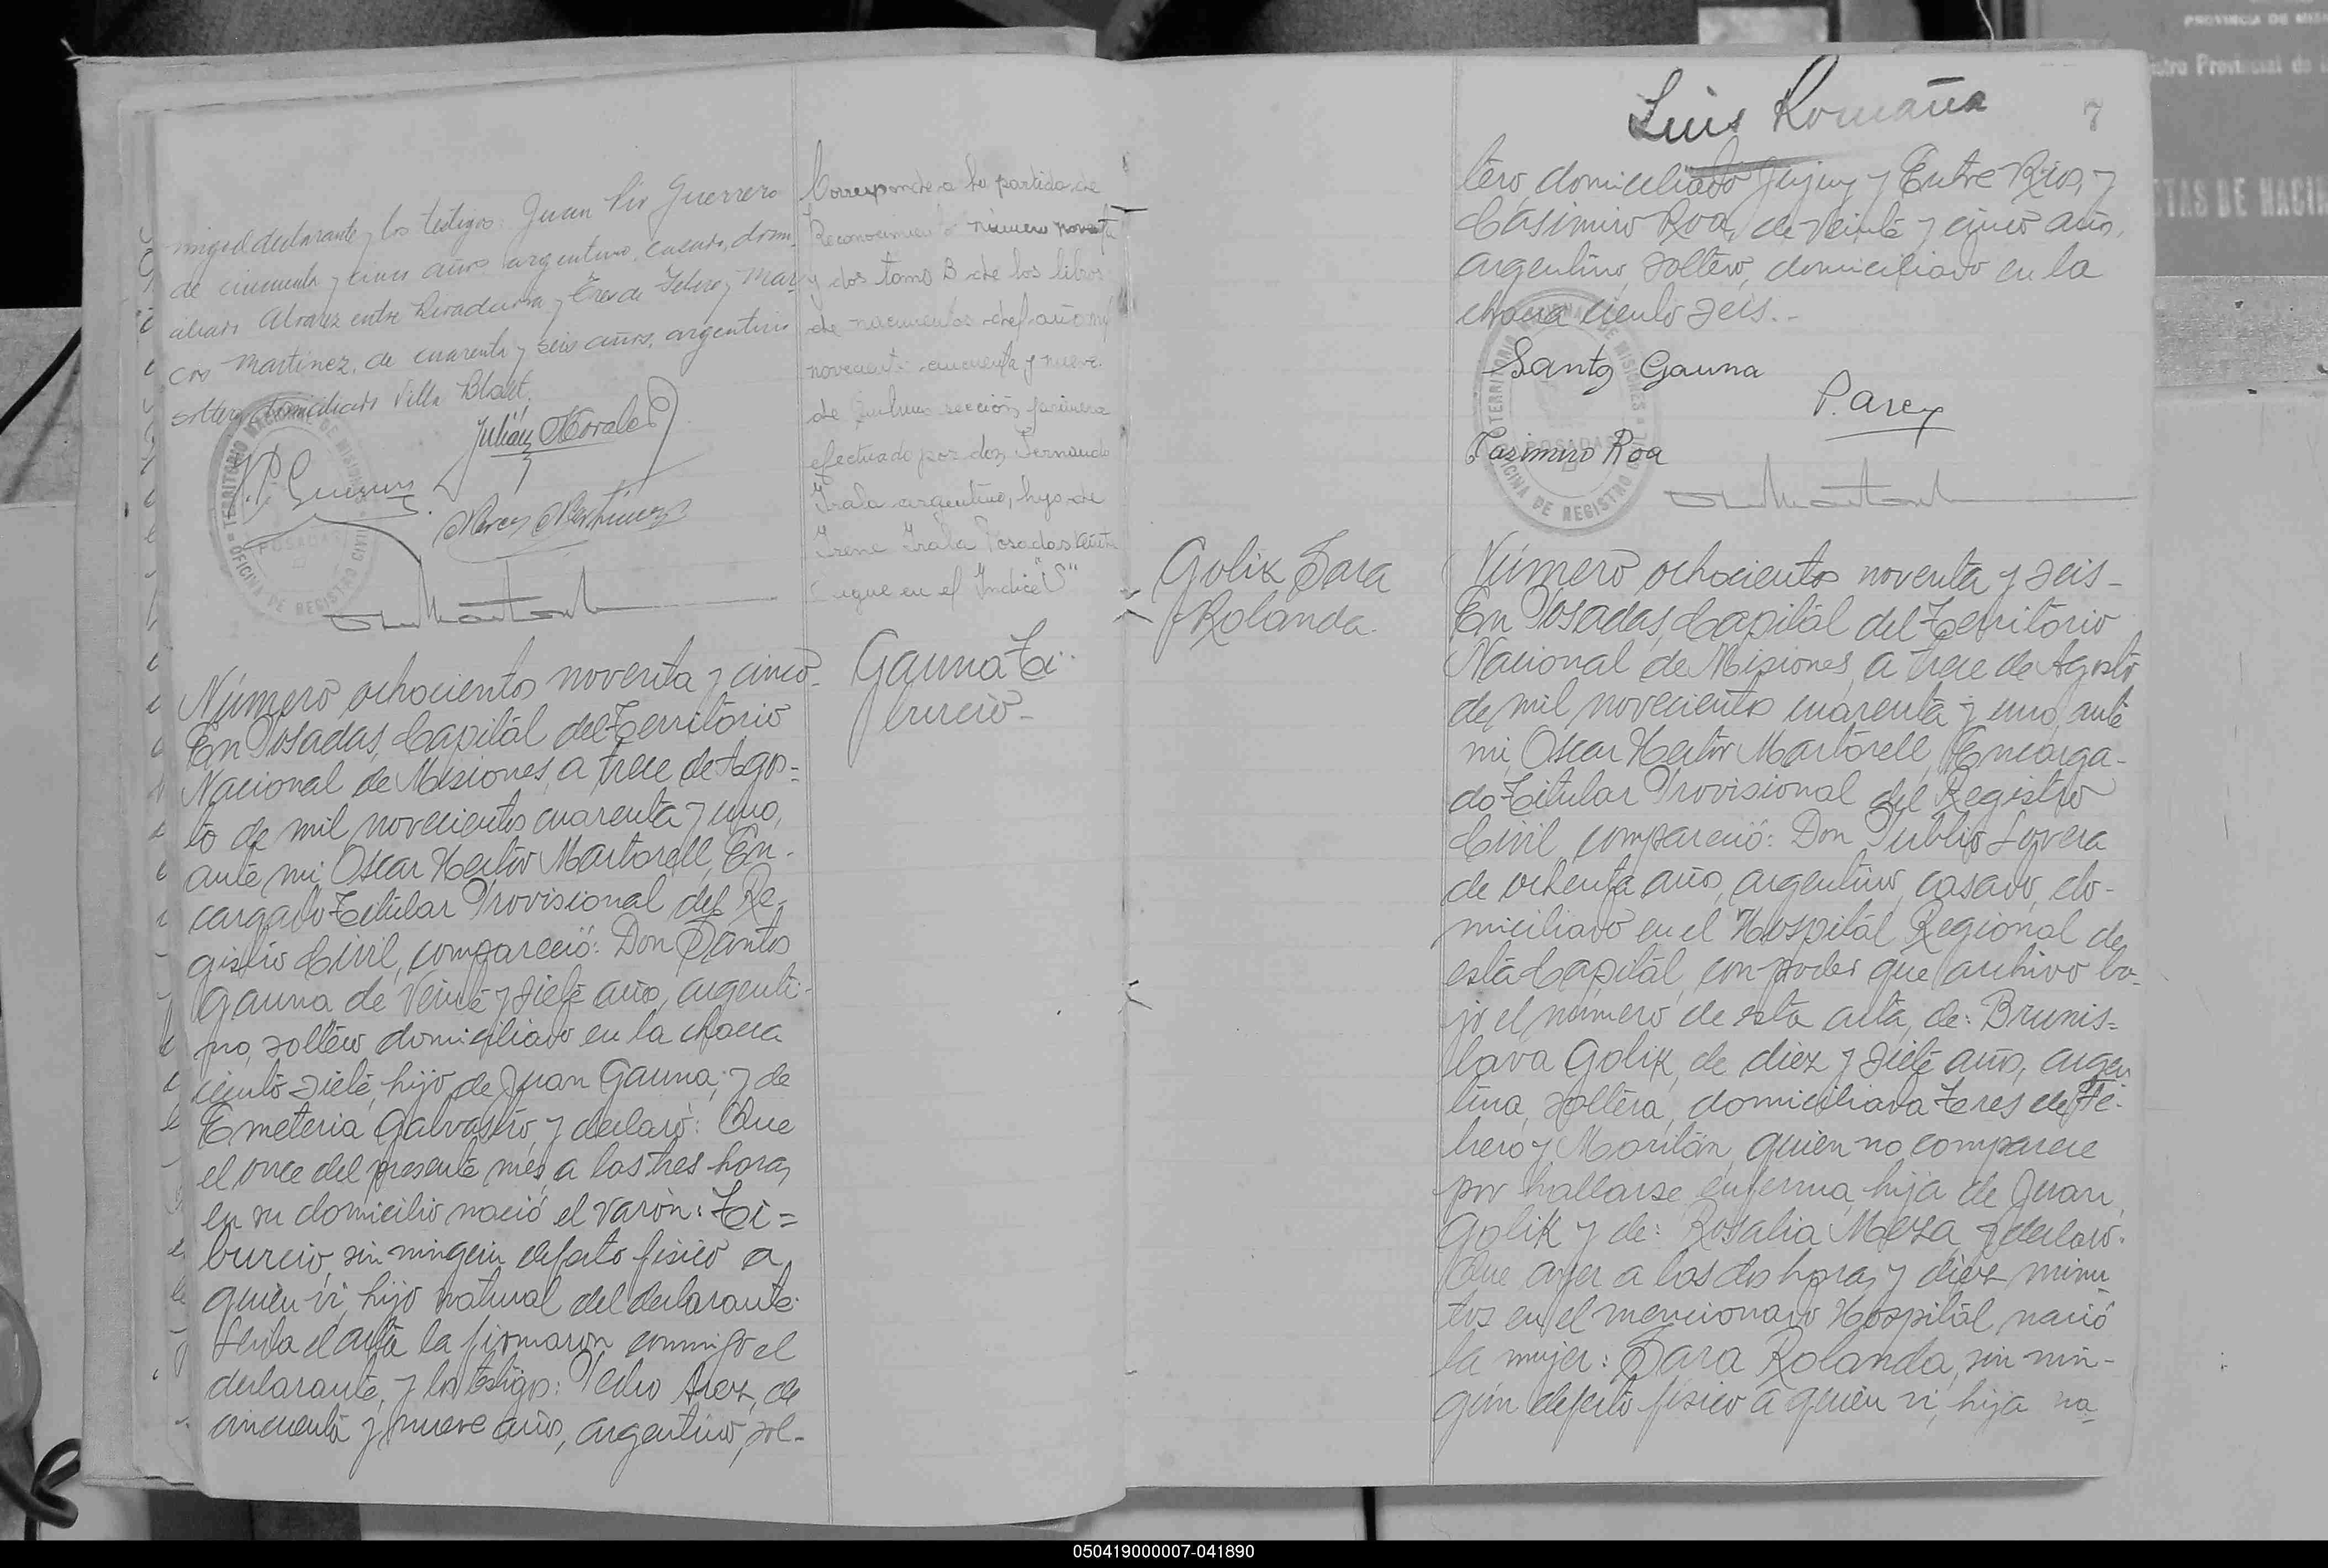 migo el declarante, y los testigos: Juan Pío Guerrero
de cincuenta y cinco años, argentino, casado, domi-
ciliado Alvarez entre Rivadavia y Tres de Febrero y Mar-
cos Martinez, de cuarenta y seis años, argentino
soltero, domiciliado Villa Blost.
J. P. Guerrero
Julián Morales
Marcos Martinez
TERRITORIO NACIONAL DE MISIONES
POSADAS
OFICINA DE REGISTRO CIVIL
Corresponde a la partida de
Reconocimiento número noventa
y dos tomo B de los libros
de nacimientos del año mil
novecientos cincuenta y nueve
de sección primera
efectuado por don Fernando
Irala argentino, hijo de
Irene Irala Posadas
Sigue en el Indice "S"
Número ochocientos noventa y cinco-
En Posadas, Capitál del Territorio
Nacional de Misiones, a trece de Agos=
to de mil novecientos cuarenta y uno,
ante mi, Oscar Hector Martorell, En-
cargado Titular Provisional del Re-
gistro Civil, compareció: Don Santos
Gauna de veinte y siete años, argenti-
no, soltero, domiciliado en la chacra
ciento siete, hijo de Juan Gauna; y de
Emeteria Galvastro, y declaró: Que
el once del presente mes, a las tres horas,
en su domicilio nació el varón: Ti=
burcio, sin ningún defecto físico a
quien vi, hijo natural del declarante.
Leida el acta la firmaron conmigo el
declarante, y los testigos: Pedro Arez, de
cincuenta y nueve años, argentino, sol-
Gauna Ti-
burcio-
Luis Romaña
7
tero, domiciliado Jujuy y Entre Rios, y
Casimiro Roa, de veinte y cinco años,
argentino, soltero, domiciliado en la
chacra ciento seis.-
Santos Gauna
P. Arez
Casimiro Roa
TERRITORIO NACIONAL DE MISIONES
POSADAS
OFICINA DE REGISTRO CIVIL
Golik Sara
Rolanda.
Número ochocientos noventa y seis-
En Posadas, Capitál del Territorio
Nacional de Misiones, a trece de Agosto
de mil novecientos cuarenta y uno, ante
mi, Oscar Hector Martorell, Encarga-
do Titular Provisional del Registro
Civil, compareció: Don Publio Lovera
de ochenta años, argentino, casado, do-
miciliado en el Hospitál Regional de
esta Capitál, con poder que archivo ba-
jo el número de esta acta, de: Brunis=
lava Golik, de diez y siete años, argen
tina, soltera, domiciliada Tres de Fe-
brero y Morilán, quien no comparece
por hallarse enferma, hija de Juan
Golik y de: Rosalia Meza, y declaró.
Que ayer a las dos horas y diez minu
tos en el mencionado Hospitál, nació
la mujer: Sara Rolanda, sin nin-
gún defecto físico a quien vi, hija na-
PROVINCIA DE MISI
istro Provincial de l
CTAS DE NACIM
050419000007-041890